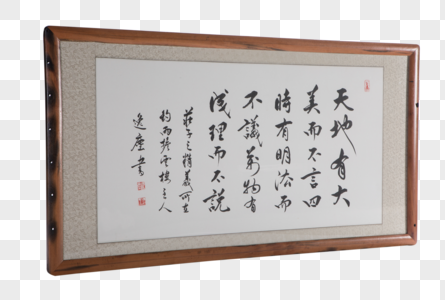 天地有大
美而不言四
時有明法而
不議萬物有
成理而不説
莊子之精義所在
雨雲樓主人
逸書